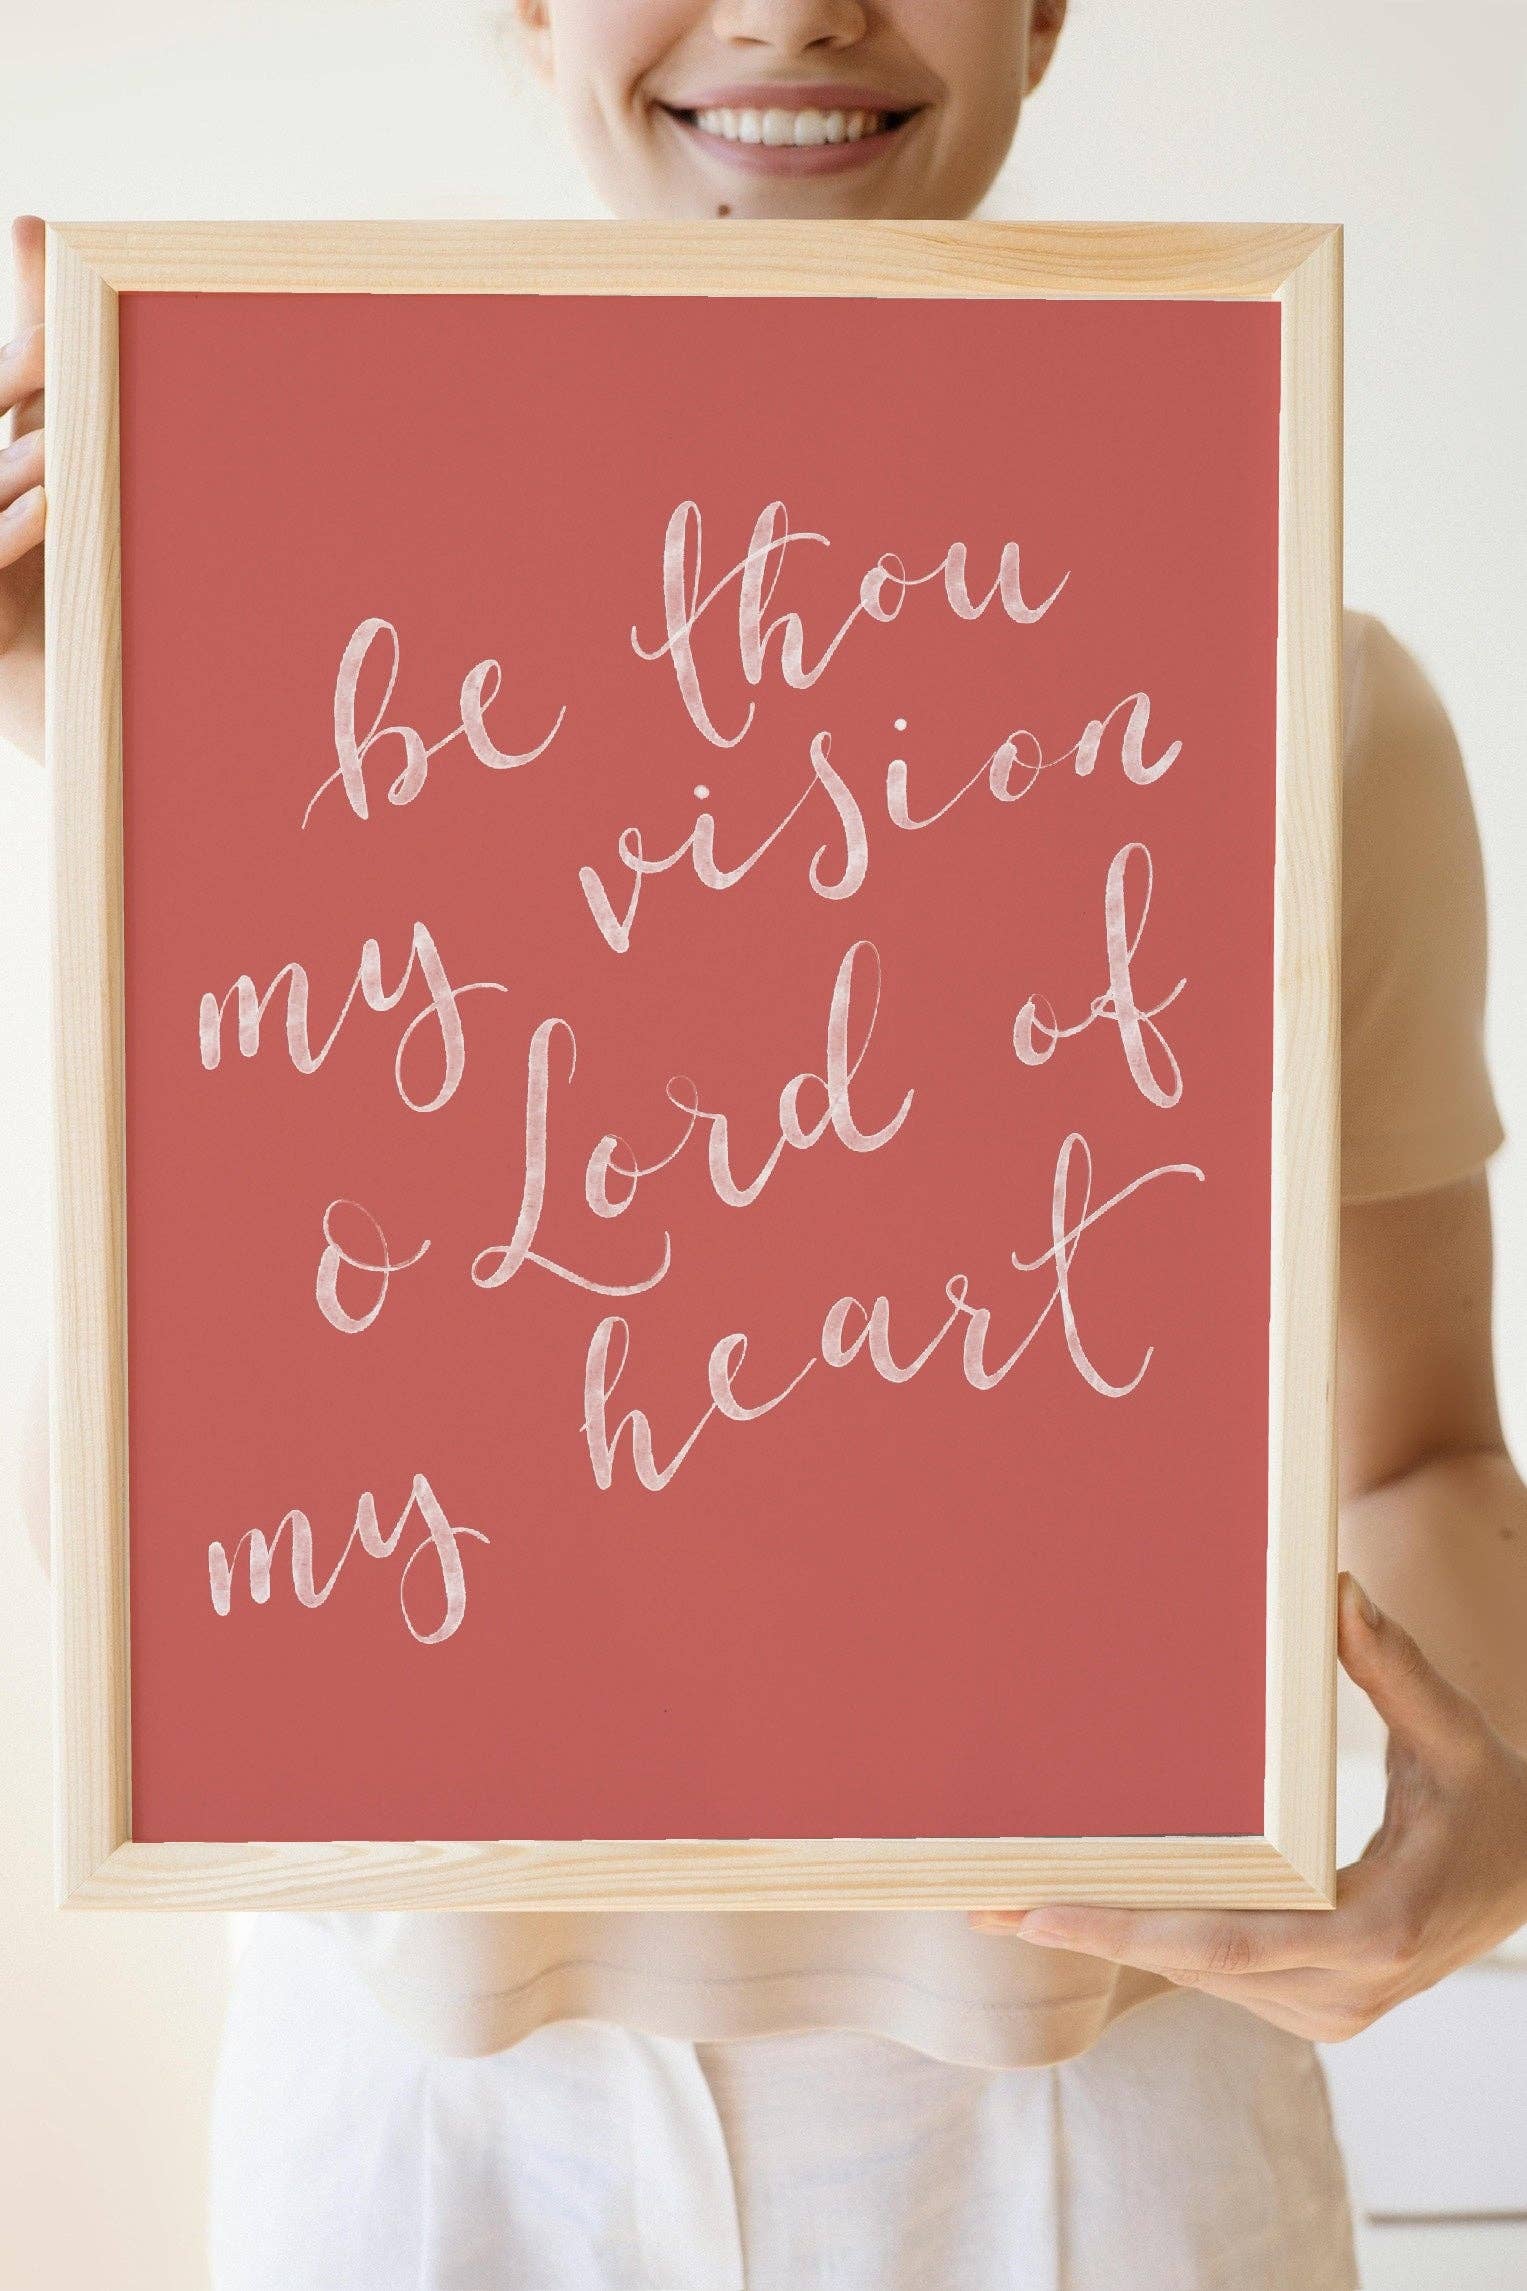 be thou
my vision
o Lord of
my heart